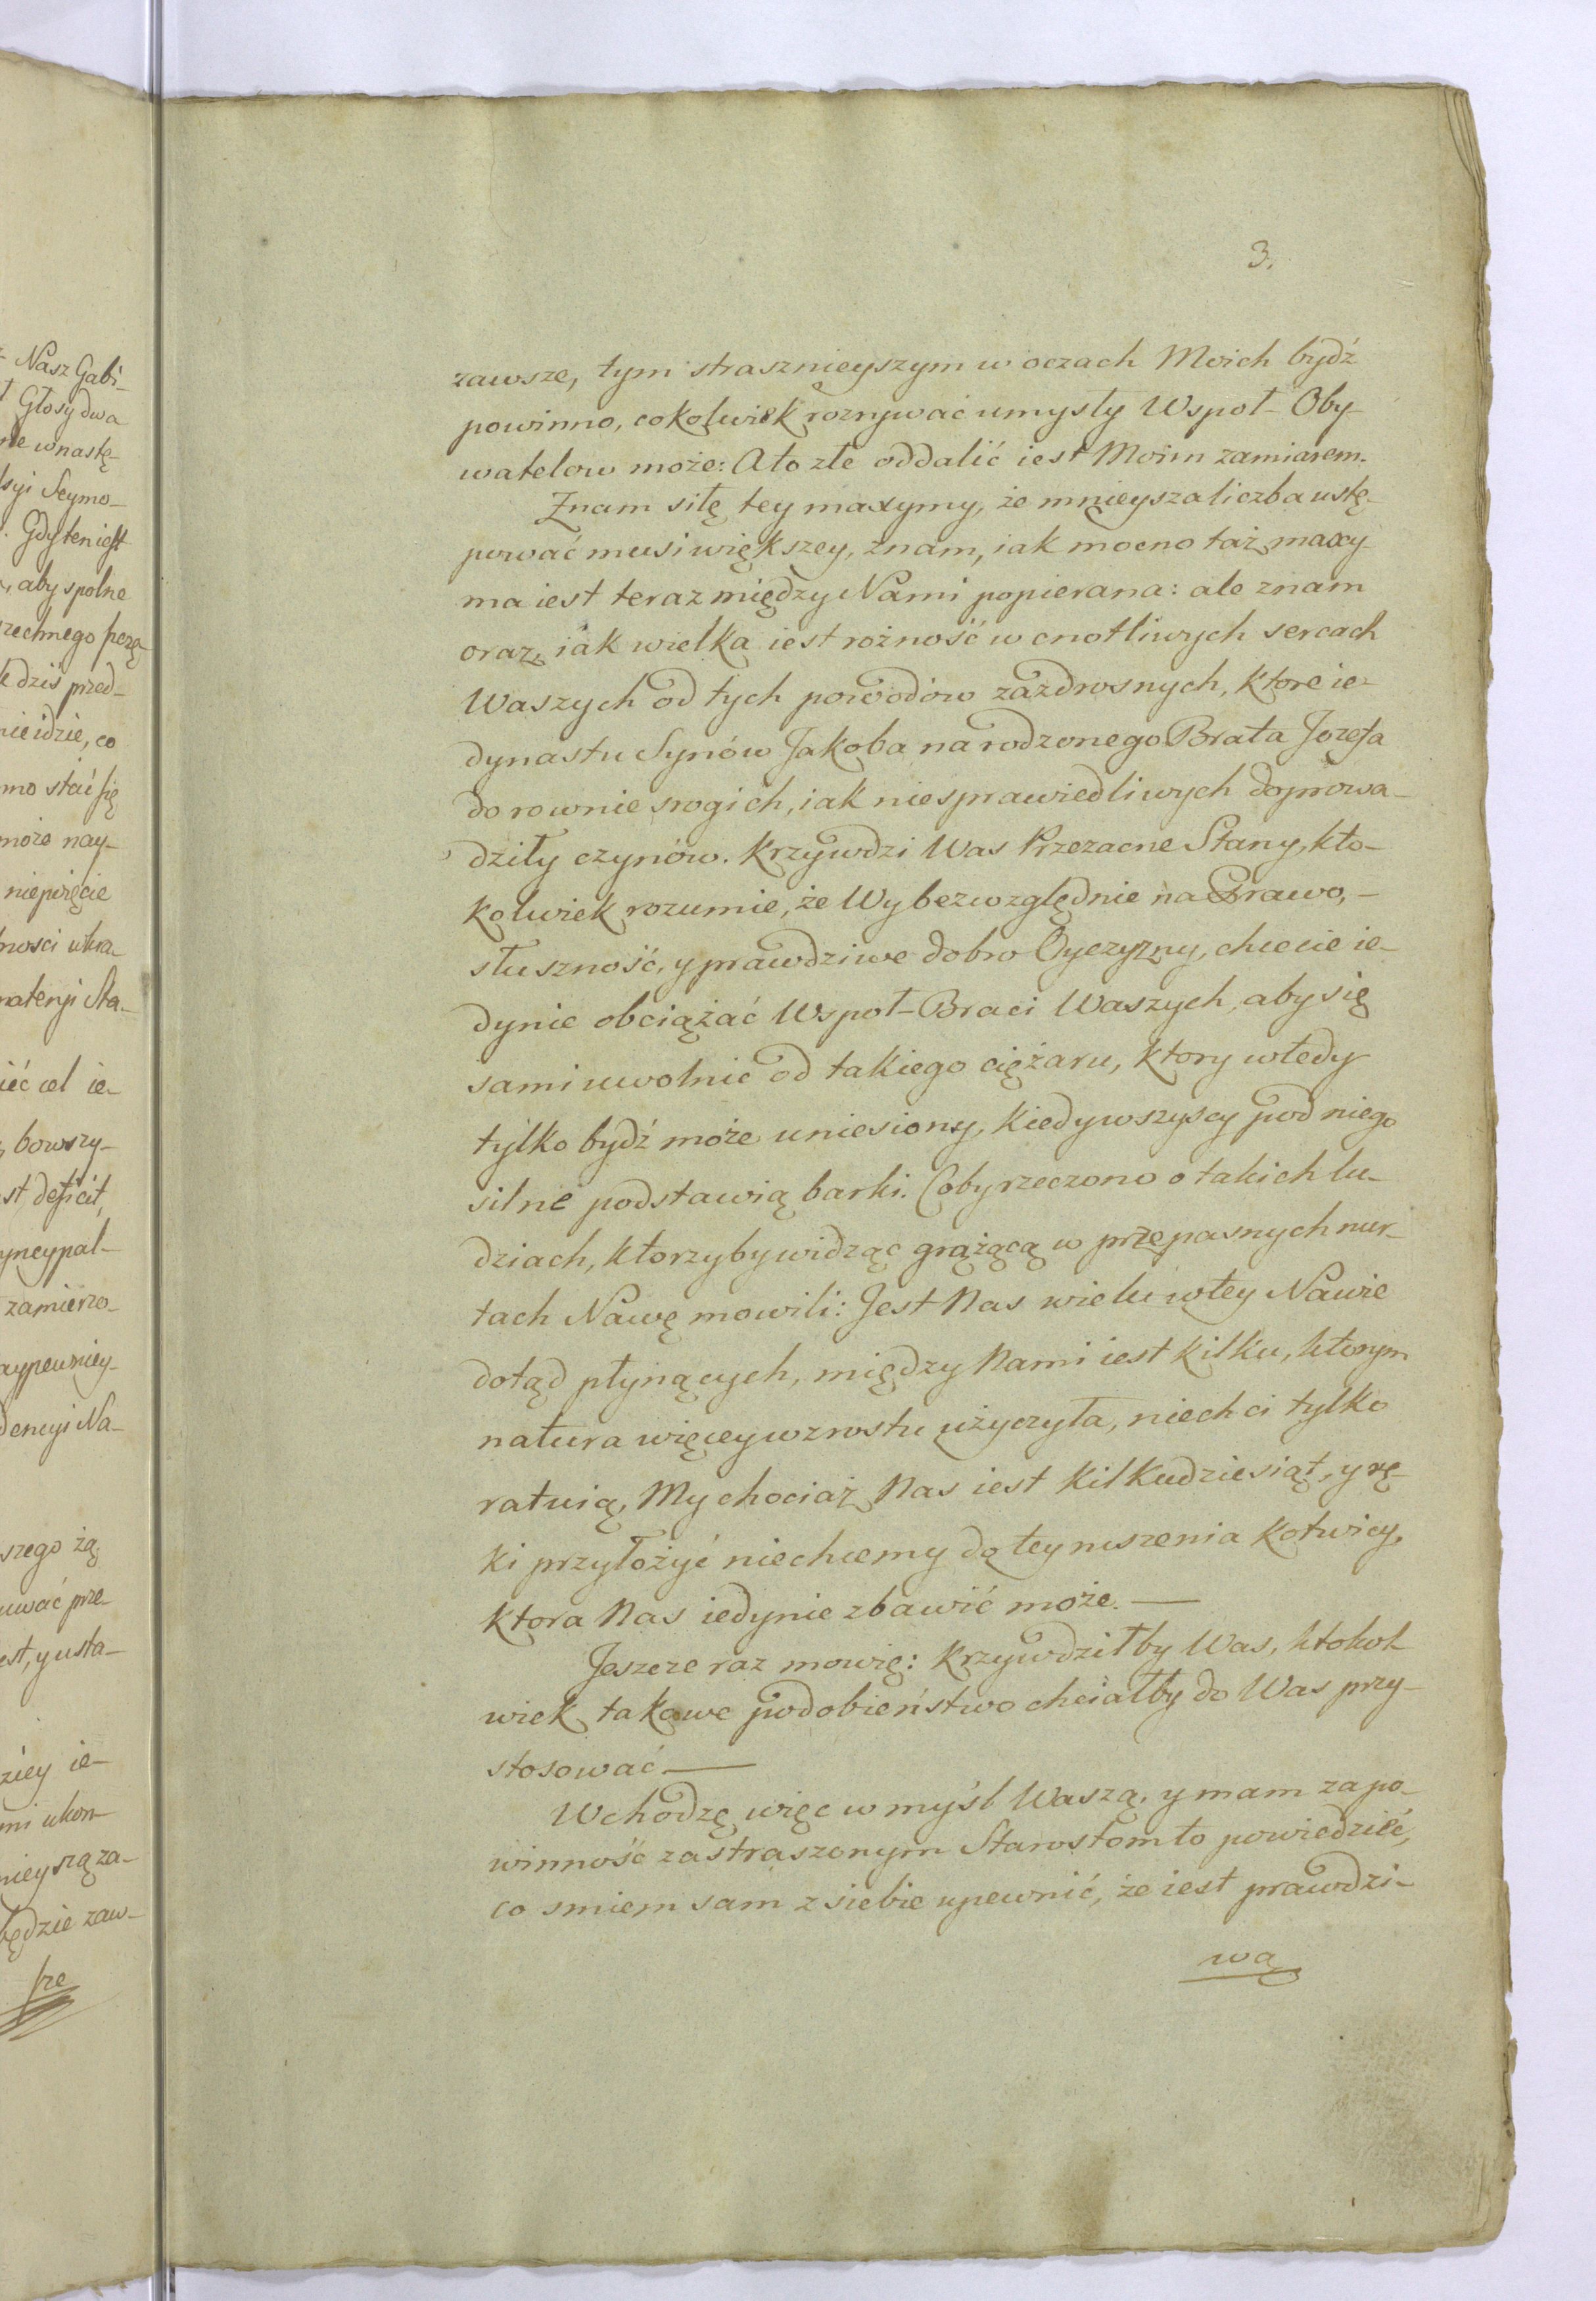 Nasz Gabi-
Głosy dwa
wnastę-
syi Seymo-
Gdy ten iest
aby spolne
rzechnego przą
dziś przed-
nie idzie, co
mo stać się
może nay-
niepięcie
ności ukra-
materyi Sta-
ieć cel ie-
bowszy-
st deficit,
yncypal-
zamierzo-
aypewniey-
dencyi Na-
szego żą
uwać prze-
est, y usta-
ziey ie-
mi ukon-
nieyszą za-
będzie zaw-
sze
3.
zawsze, tym strasznieyszym w oczach Moich bydź
powinno, cokolwiek roznywać umysły Wspoł-Oby-
watelow może: A to złe oddalić iest Moim zamiarem.
Znam siłę tey maxymy, że mnieysza liczba ustę-
pować musi większey, znam, iak mocno taż maxy-
ma iest teraz między Nami popierana: ale znam
oraz, iak wielka iest rożność w cnotliwych sercach
Waszych od tych powodów zazdrosnych, ktore ie-
dynastu Synów Jakoba na rodzonego Brata Jozefa
do rownie srogich, iak niesprawiedliwych doprowa-
dziły czynów. Krzywdzi Was Przezacne Stany, kto-
kolwiek rozumie, że Wy bezwzględnie na Prawo,-
słuszność, y prawdziwe dobro Oyczyzny, chcecie ie-
dynie obciążać Wspoł-Braci Waszych, aby się
sami uwolnić od takiego ciężaru, ktory wtedy
tylko bydź może uniesiony, kiedy wszyscy pod niego
silne podstawią barki. Coby rzeczono o takich lu-
dziach, ktorzyby widząc grążącą w przepasnych nur-
tach Nawę mowili: Jest Nas wielu w tey Nawie
dotąd płynących, między Nami iest kilku, ktorym
natura więcey wzrostu użyczyła, niech ci tylko
ratuią, My chociaż Nas iest kilkudziesiąt, y rę-
ki przyłożyć niechcemy do tey ruszenia kotwicy,
ktora Nas iedynie zbawić może. —
Jeszcze raz mowię: Krzywdziłby Was, ktokol
wiek takowe podobieństwo chciałby do Was przy-
stosować. —
Wchodzę więc w myśl Waszą, y mam za po-
winność zastraszonym Starostom to powiedzieć,
co smiem sam z siebie upewnić, że iest prawdzi-
wą